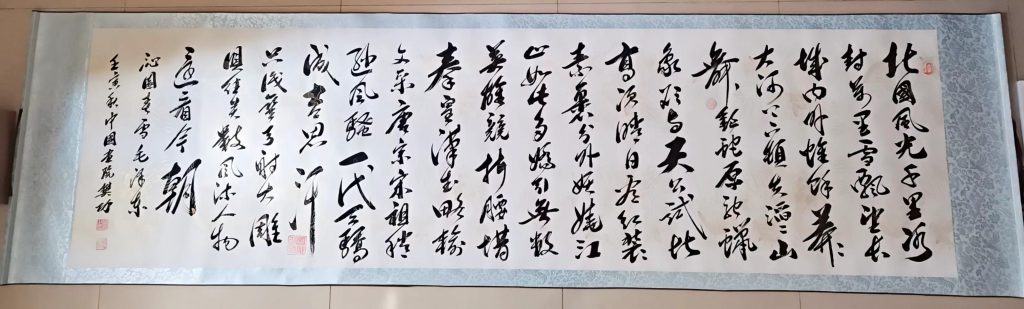 北國風光千里冰
封萬里雪飄望长
城内外惟餘莽〻
大河上下頓失滔〻山
舞銀蛇原驰蠟
象欲与天公試比
高须晴日看红装
素裹分外妖娆江
山如此多娇引無数
英雄競折腰惜
秦皇漢武略输
文采唐宗宋祖稍
遜風騷一代天驕
成吉思汗
只識彎弓射大雕
俱往矣數風流人物
還看今朝
沁園春雪毛泽东
壬寅秋中國書院